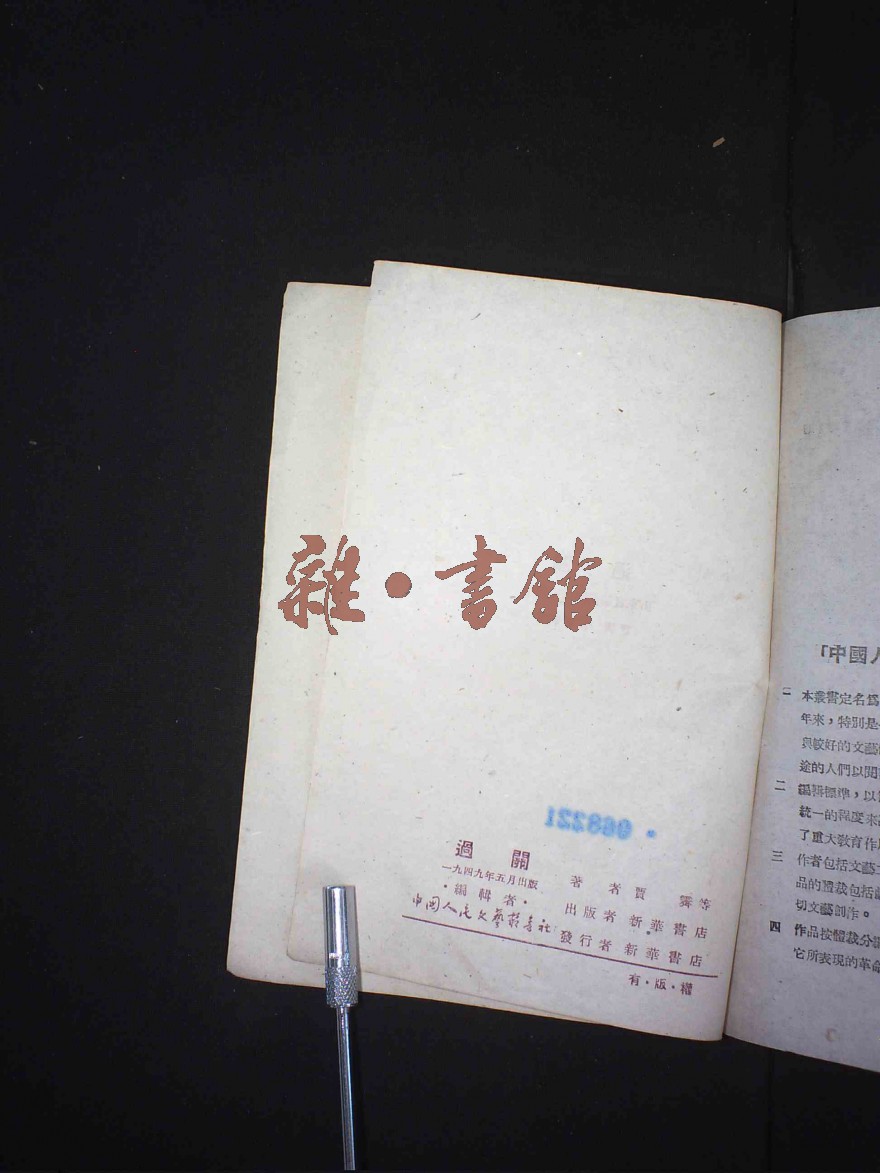 雜·書館
過關
一九四九年五月出版
·編輯者·
中国人民文藝叢書社
著者賈霽等
出版者新華書店
發行者新華書店
有·版·權
「中國人
一 本叢書定名爲
年來,特別是
與較好的文藝
途的人們以閱
二 編輯標準,以
統一的程度來
了重大教育作
三 作者包括文藝
品的體裁包括
切文藝創作。
四 作品按體裁分
它所表現的革命